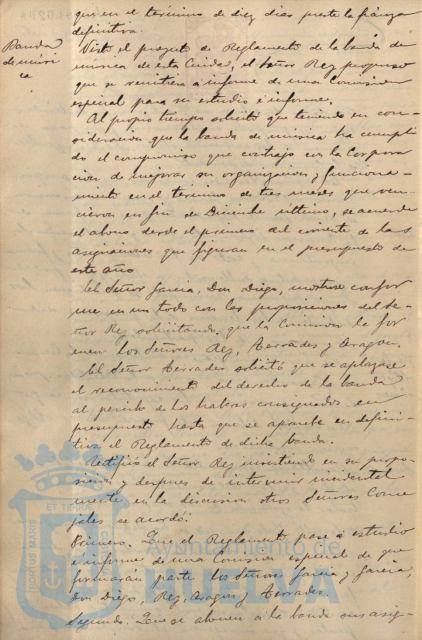 que en el término de diez dias preste la fianza
definitiva.
Banda
de musi
ca
Visto el proyecto de Reglamento de la banda de
música de esta Ciudad, el Señor Rey propuso
que se remitiera a informe de una Comision
especial para su estudio é informe.
Al propio tiempo solicitó que teniendo en con-
sideracion que la banda de música ha cumpli
do el compromiso que contrajo con la Corpora
cion de mejorar su organizacion y funciona-
miento en el término de tres meses que ven-
cieron en fin de Diciembre último, se acuerde
el abono desde el primero del corriente de las
asignaciones que figuran en el presupuesto de
este año
El Señor Garcia, Don Diego, mostrose confor
me en un todo con las proposiciones del Se-
ñor Rey solicitando que la Comision la for
men los Señores Rey, Terrades y Aragon.
El Señor Terrades solicitó que se aplazase
el reconocimiento del derecho de la banda
al percibo de los haberes consignados en
presupuesto hasta que se apruebe en defini-
tiva el Reglamento de dicha banda.
Rectificó el Señor Rey insistiendo en su propo-
sicion y despues de intervenir incidental
mente en la discusion otros Señores Conce
jales se acordó:
Primero. Que el Reglamento pase á estudio
é informe de una Comision especial de que
formarán parte los Señores Garcia y Garcia,
Don Diego, Rey, Aragon y Terrades.
Segundo. Que se abonen a la banda sus asig-
Ayuntamiento de
HUELVA
ET TERRA
PORTUS MARIS